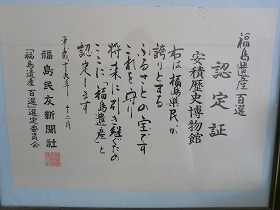 福島遺産百選
認定証
安積歴史博物館
右は福島県民が
誇りとする
ふるさとの宝です
これを守り
将来に引き継ぐため
ここに「福島遺産」と
認定します
平成十九年 十二月
福島民友新聞社
「福島遺産百選」選定委員会